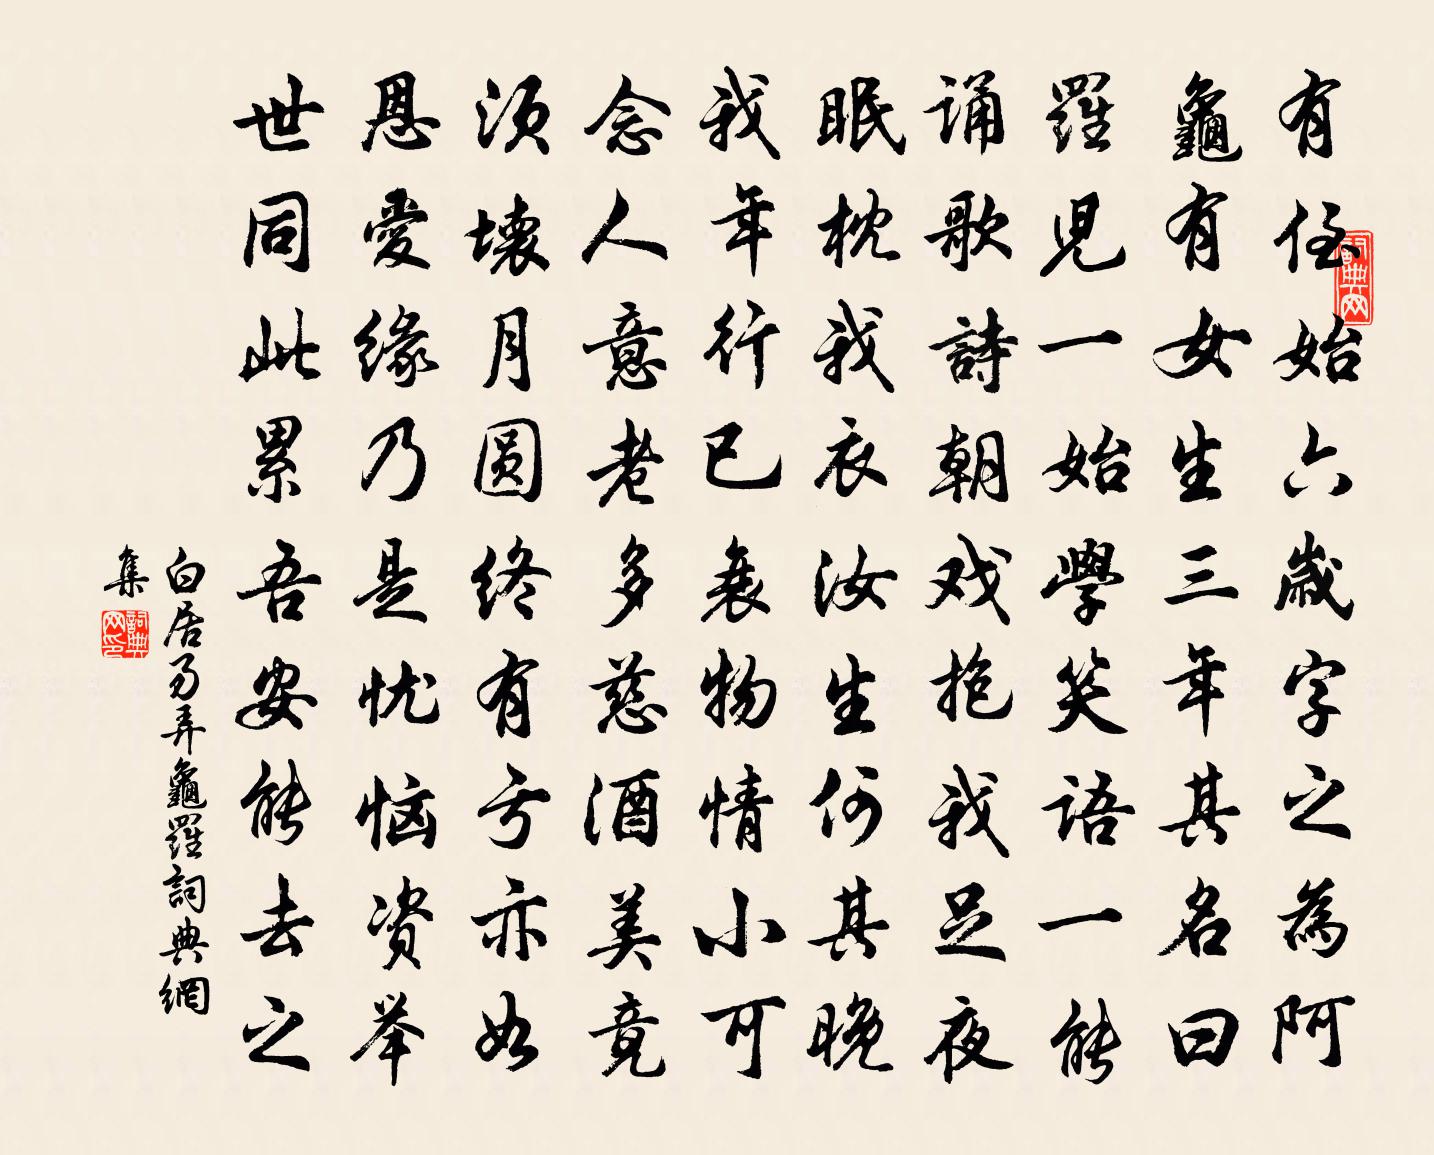 有侄始六歲字之為阿
龜有女生三年其名曰
羅兒一始學笑語一能
诵歌詩朝戏抱我足夜
眠枕我衣汝生何其晚
我年行已衰物情小可
念人意老多慈酒美竟
须壞月圆终有亏亦如
恩愛缘乃是忧恼资举
世同此累吾安能去之
白居易弄龜羅詞典網
集
詞典网
詞典网印